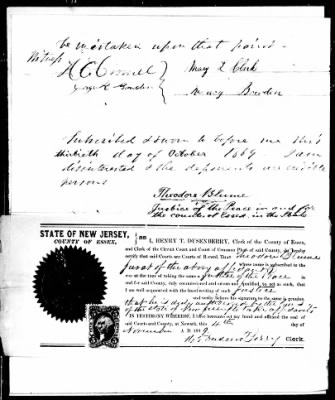 be mistaken upon that point.
Witness
Mary E Clark
Nancy Burden
Subscribed & sworn to before me this
thirtieth day of October 1869 I am
disinterested & the deponents are credible
persons
Theodore Blume
Justice of the Peace in and for
the county of Essex, in the State
STATE OF NEW JERSEY,
COUNTY OF ESSEX,
I, HENRY T. DUSENBERRY, Clerk of the County of Essex,
and Clerk of the Circuit Court and Court of Common Pleas of said County, do hereby
certify that said Courts are Courts of Record. That Theodore Blume
whose name is subscribed to the
Jurat of the above affidavit
was at the time of taking the same a Justice of the Peace in
and for said County, duly commissioned and sworn and
I am well acquainted with the handwriting of such Justice
and verily believe his signature to the same is genuine,
that he is duly authorized by the laws
of the State of New Jersey to take affidavits
IN TESTIMONY WHEREOF, I have hereunto set my hand and affixed the seal of
said Courts and County, at Newark, this 4th day of
November A. D. 1869.
Clerk.